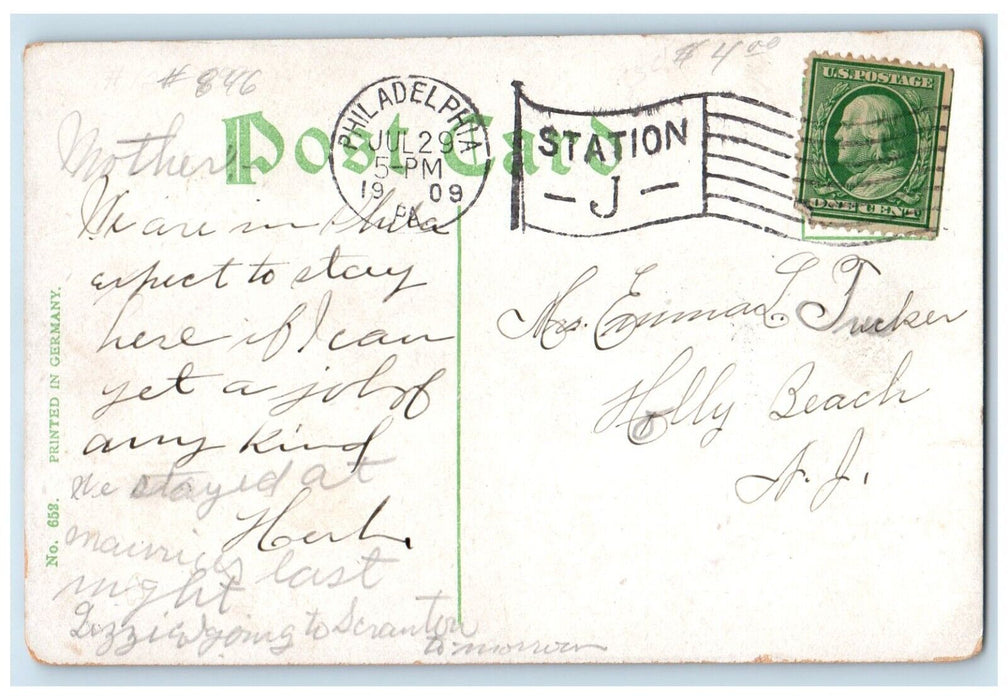 # 846
$ 4.00
Post Card
PHILADELPHIA
JUL 29
5-PM
19 09
PA.
STATION
- J -
U.S. POSTAGE
ONE CENT
Mother:-
We are in Phila
expect to stay
here if I can
get a job of
any kind
We stayed at
Herb.
maurices last
night
Lizzie going to Scranton
to-morrow
Mrs. Emma L Tucker
Holly Beach
N. J.
No. 652. PRINTED IN GERMANY.